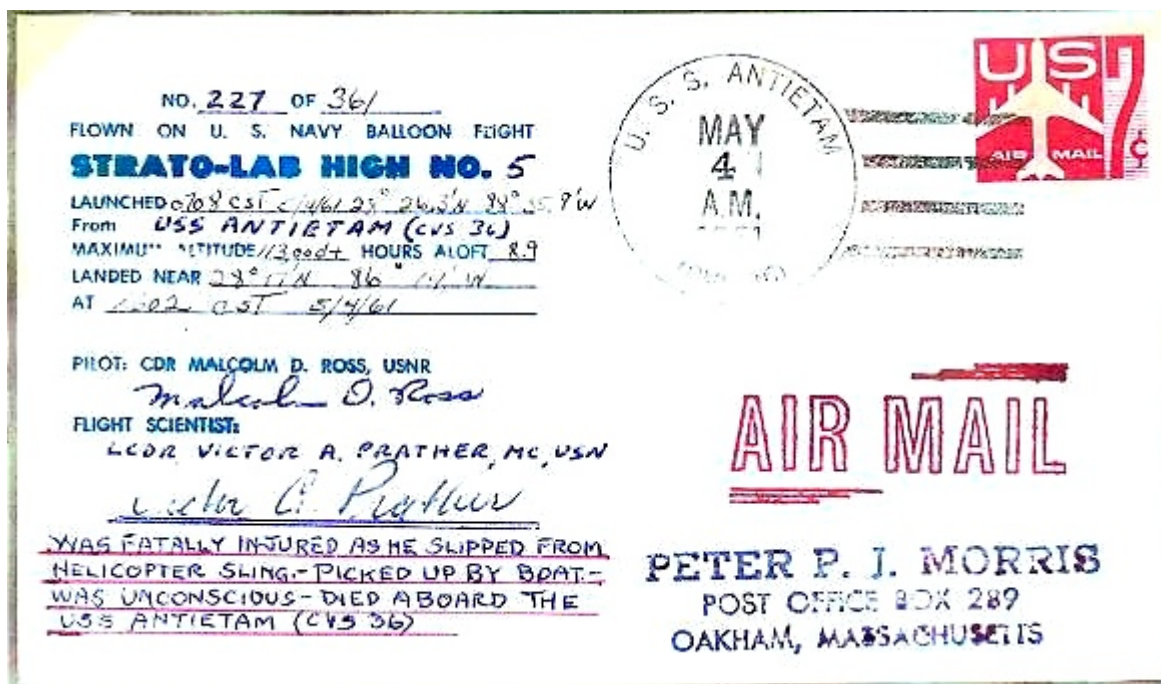 NO. 227 OF 361
FLOWN ON U. S. NAVY BALLOON FLIGHT
STRATO-LAB HIGH NO. 5
LAUNCHED 0708 CST 5/4/61 28° N 88° W
From USS ANTIETAM (CVS 36)
MAXIMUM ALTITUDE 113,000+ HOURS ALOFT 8.9
LANDED NEAR 28° N 86° W
AT CST 5/4/61
PILOT: CDR MALCOLM D. ROSS, USNR
Malcolm D. Ross
FLIGHT SCIENTIST:
LCDR VICTOR A. PRATHER, MC, USN
Victor A. Prather
WAS FATALLY INJURED AS HE SLIPPED FROM
HELICOPTER SLING.-PICKED UP BY BOAT.-
WAS UNCONSCIOUS-DIED ABOARD THE
USS ANTIETAM (CVS 36)
U. S. S. ANTIETAM
MAY
4
A.M.
US
7¢
AIR MAIL
AIR MAIL
PETER P. J. MORRIS
POST OFFICE BOX 289
OAKHAM, MASSACHUSETTS